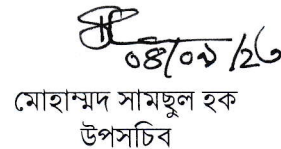 ০৪/০৯/২৩
মোহাম্মদ সামছুল হক
উপসচিব